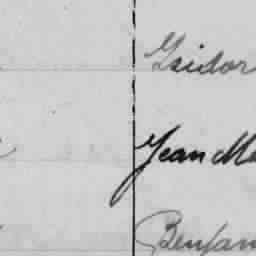 Isidor
Jean Ma
Benjam